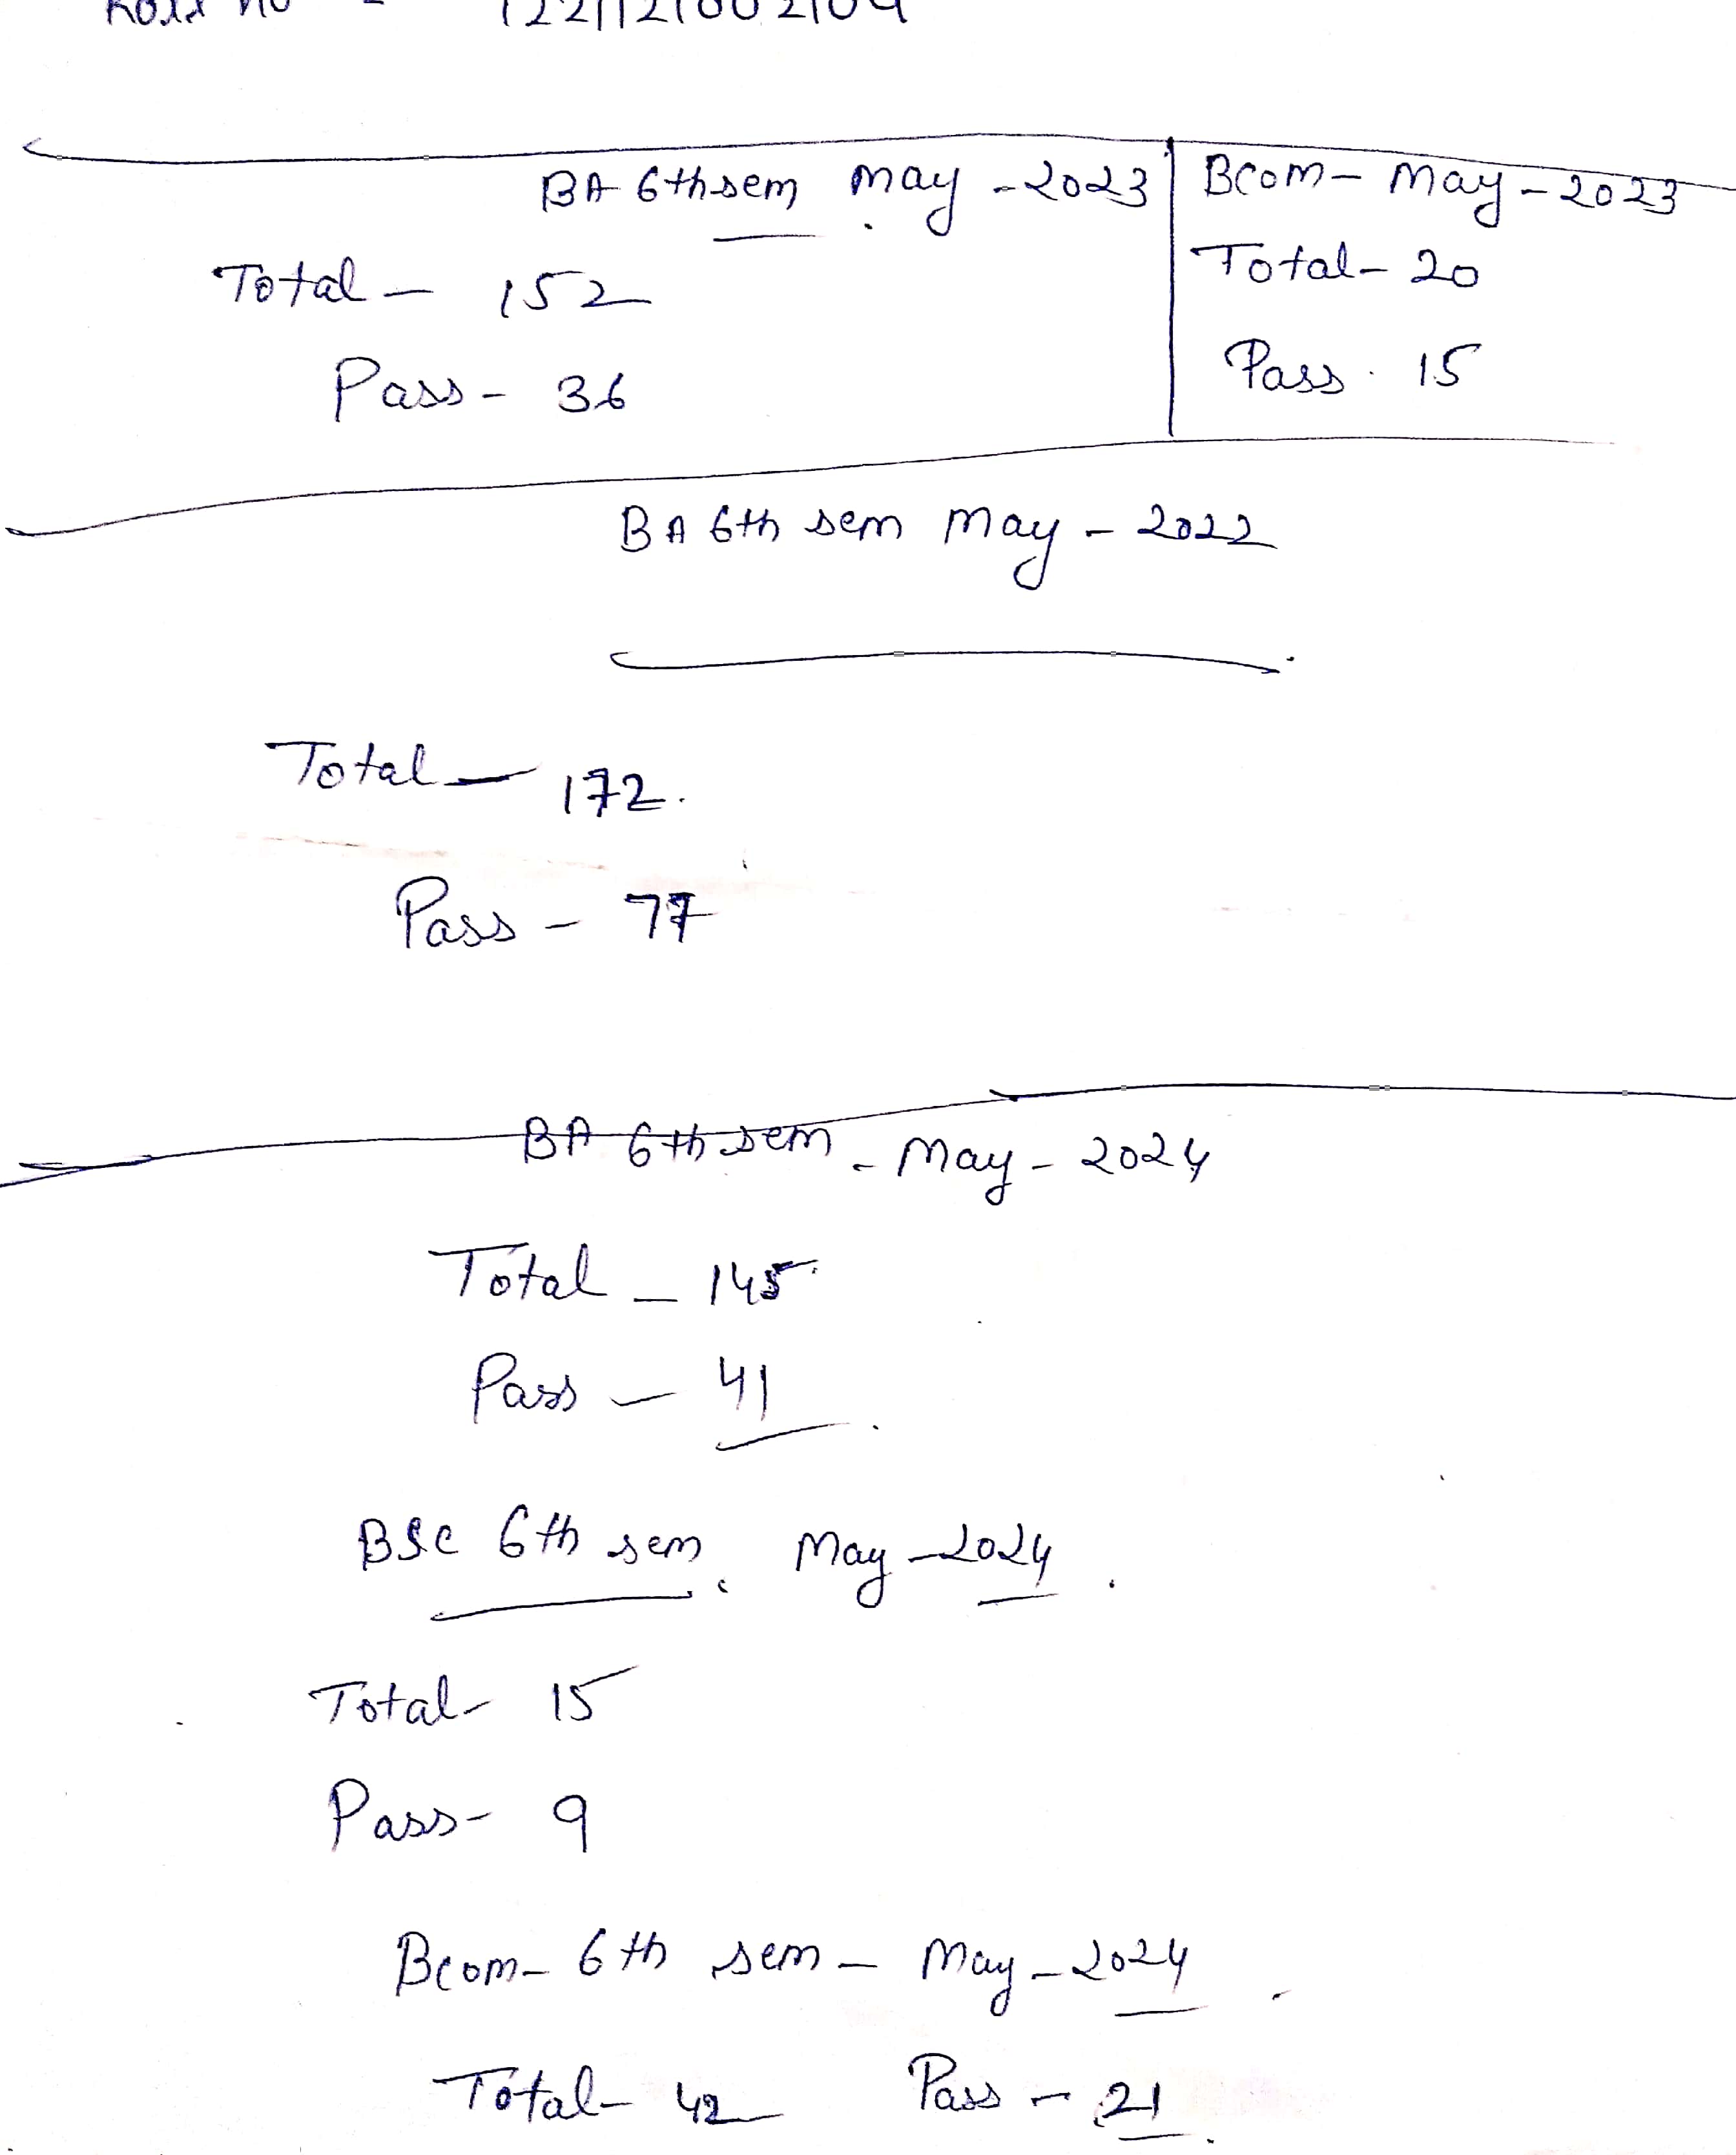 Roll no -
BA 6th sem may - 2023
Total - 152
Pass - 36
Bcom - May - 2023
Total - 20
Pass. 15
BA 6th sem May - 2022
Total - 172.
Pass - 77
BA 6th sem - May - 2024
Total - 145
Pass - 41
BSC 6th sem. May - 2024
Total - 15
Pass - 9
Bcom - 6th sem - May - 2024
Total - 42 Pass - 21